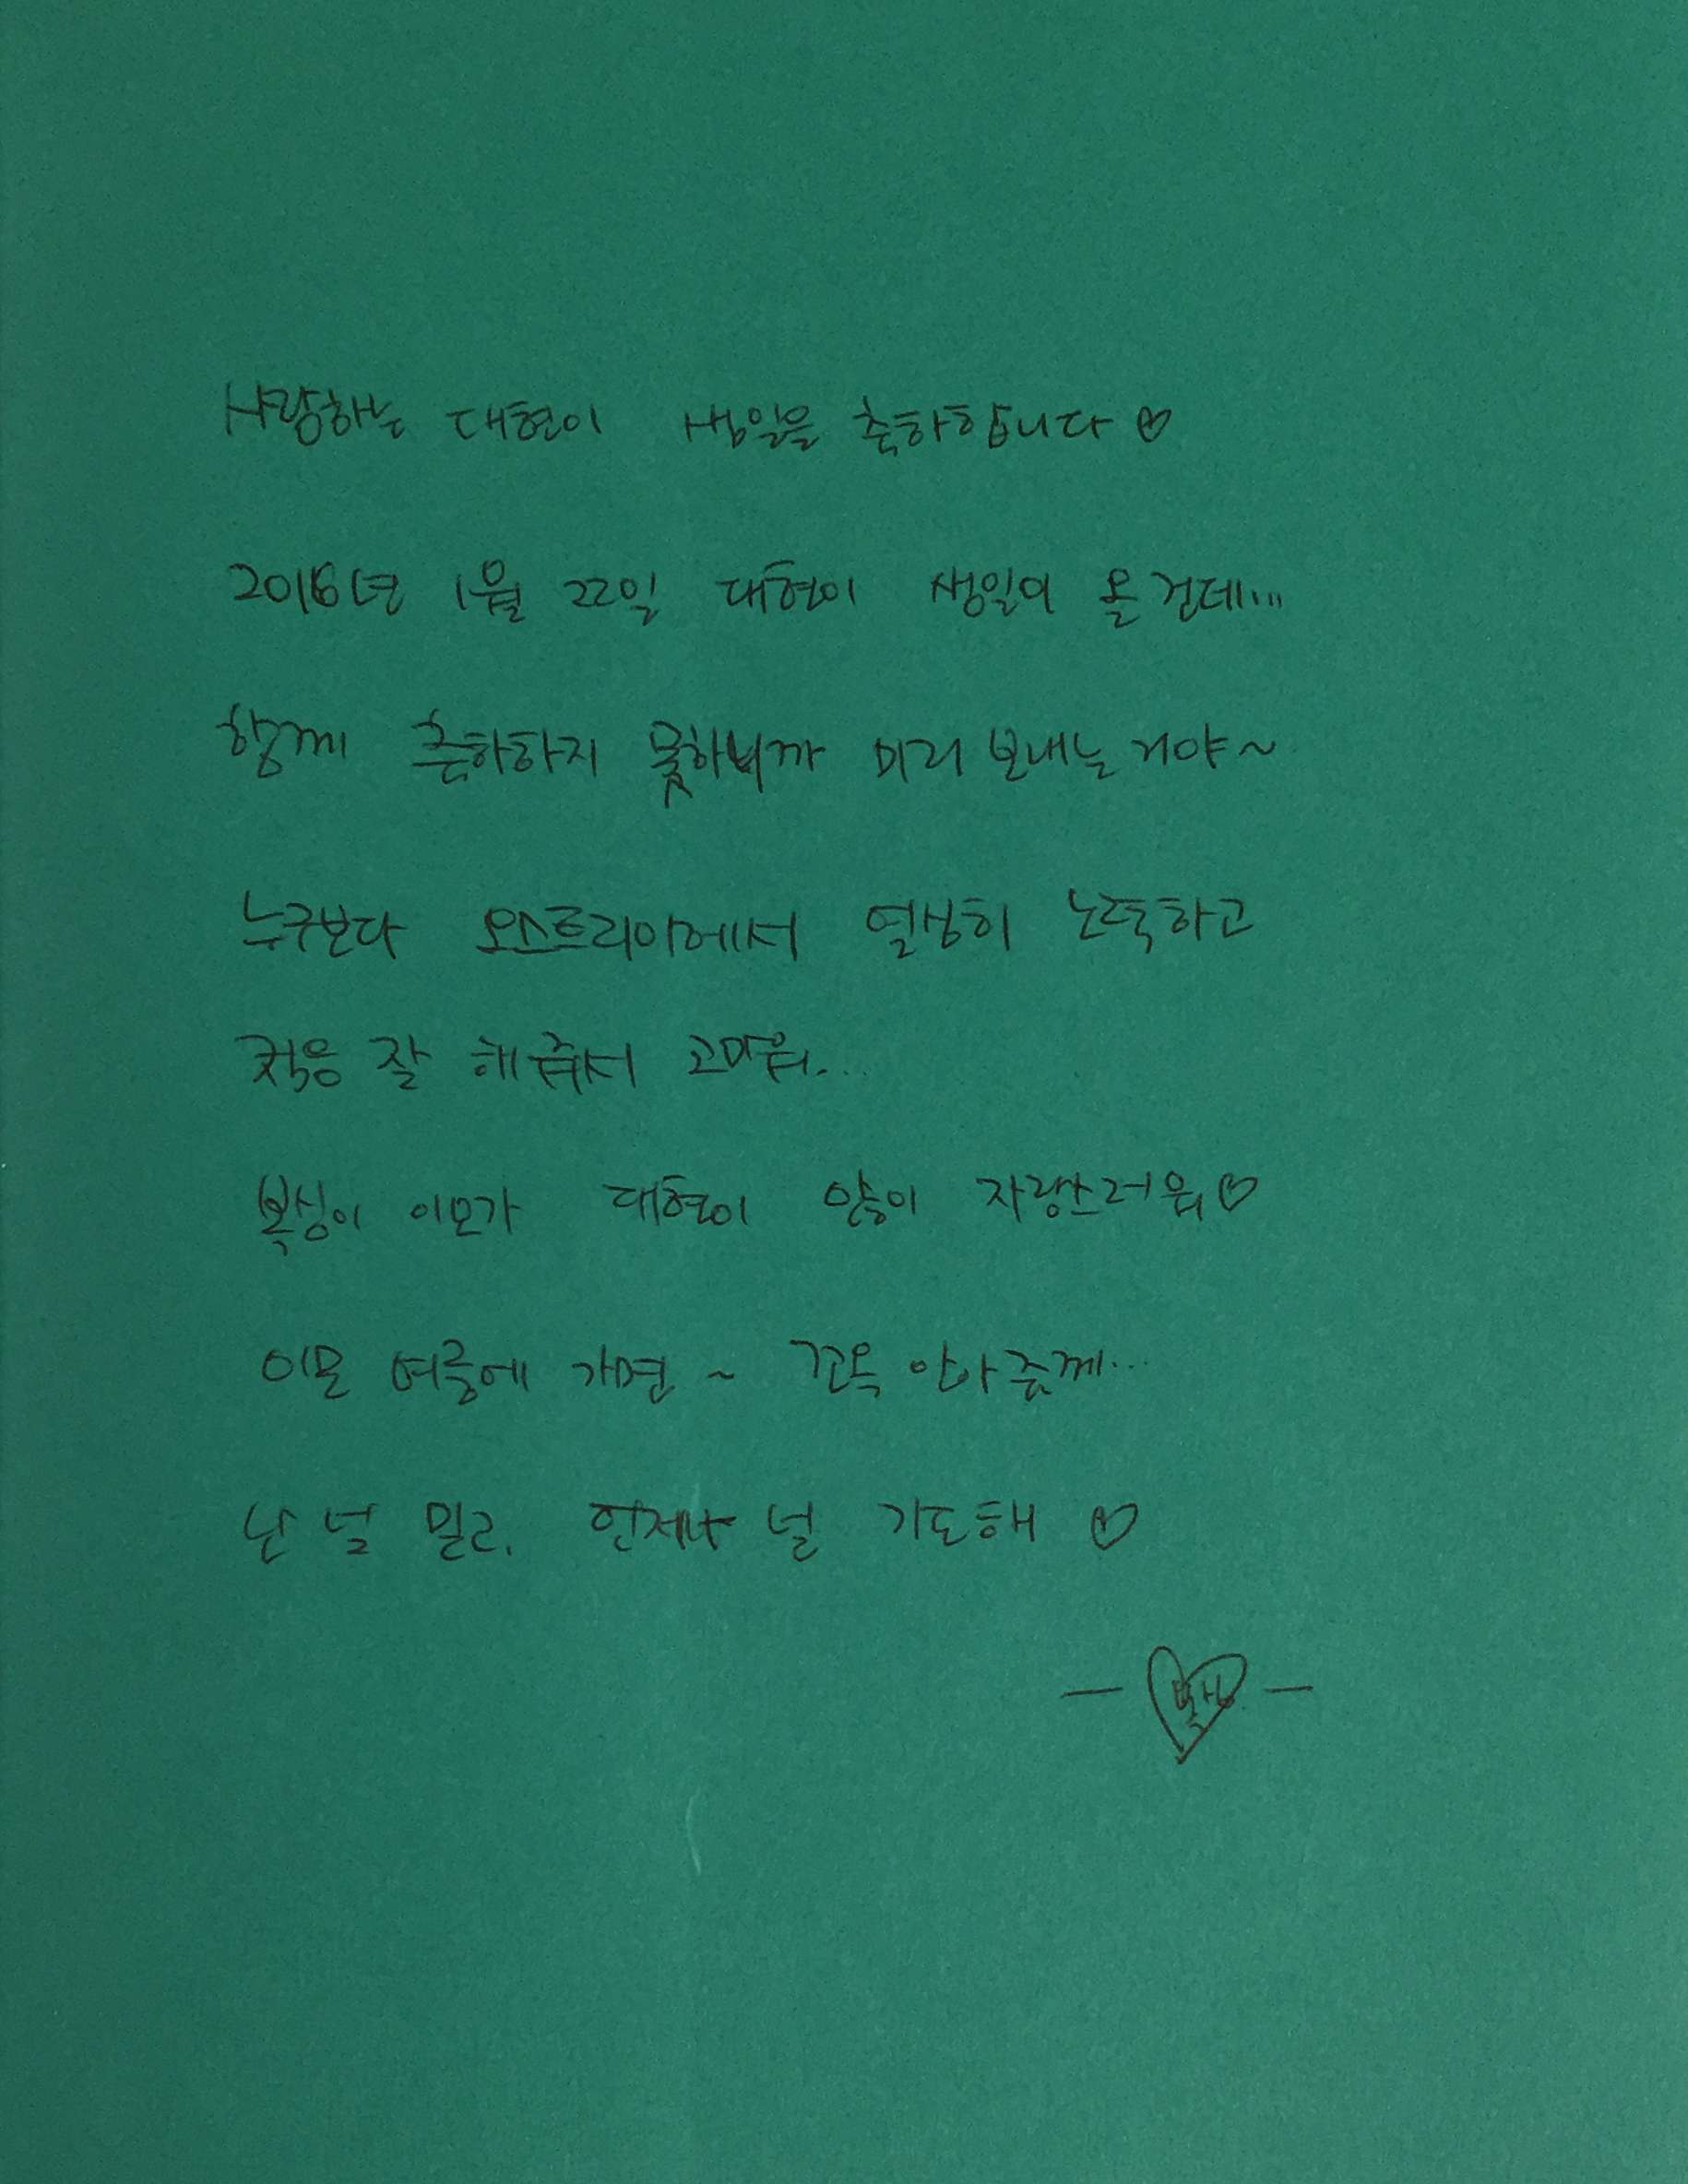 사랑하는 대현이 생일을 축하합니다♡
2016년 1월 22일 대현이 생일이 올건데...
함께 축하하지 못하니까 미리 보내는거야~
누구보다 오스트리아에서 열심히 노력하고
적응 잘 해줘서 고마워...
복성이 이모가 대현이 많이 자랑스러워♡
이모 여름에 가면~ 꼬옥 안아줄께...
난 널 믿고. 언제나 널 기도해♡
- 복성 -